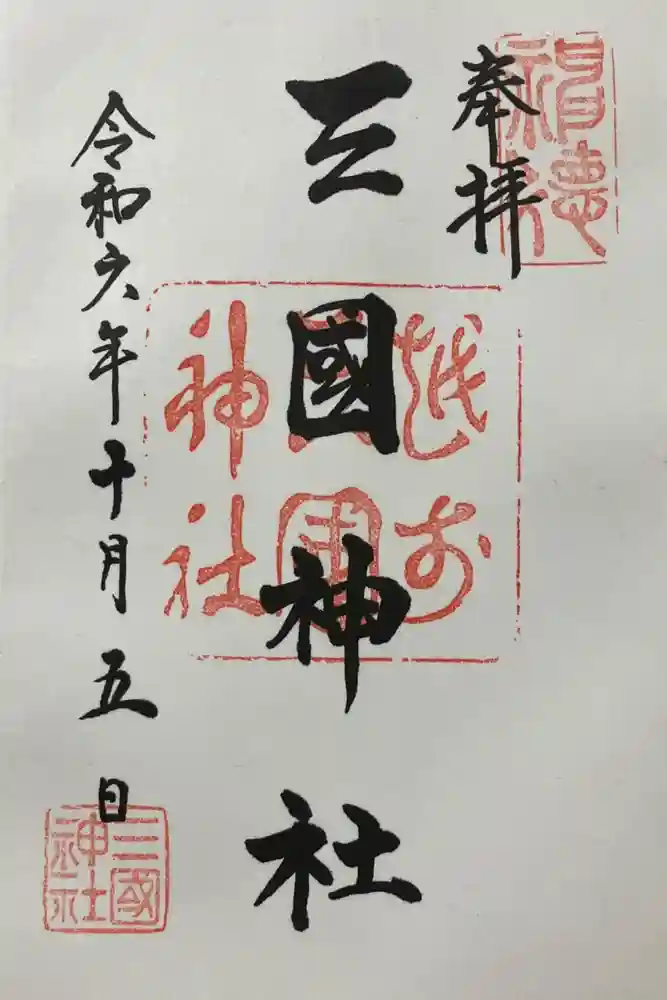 奉拝
三國神社
令和六年十月五日
越前
三國
神社
三國
神社